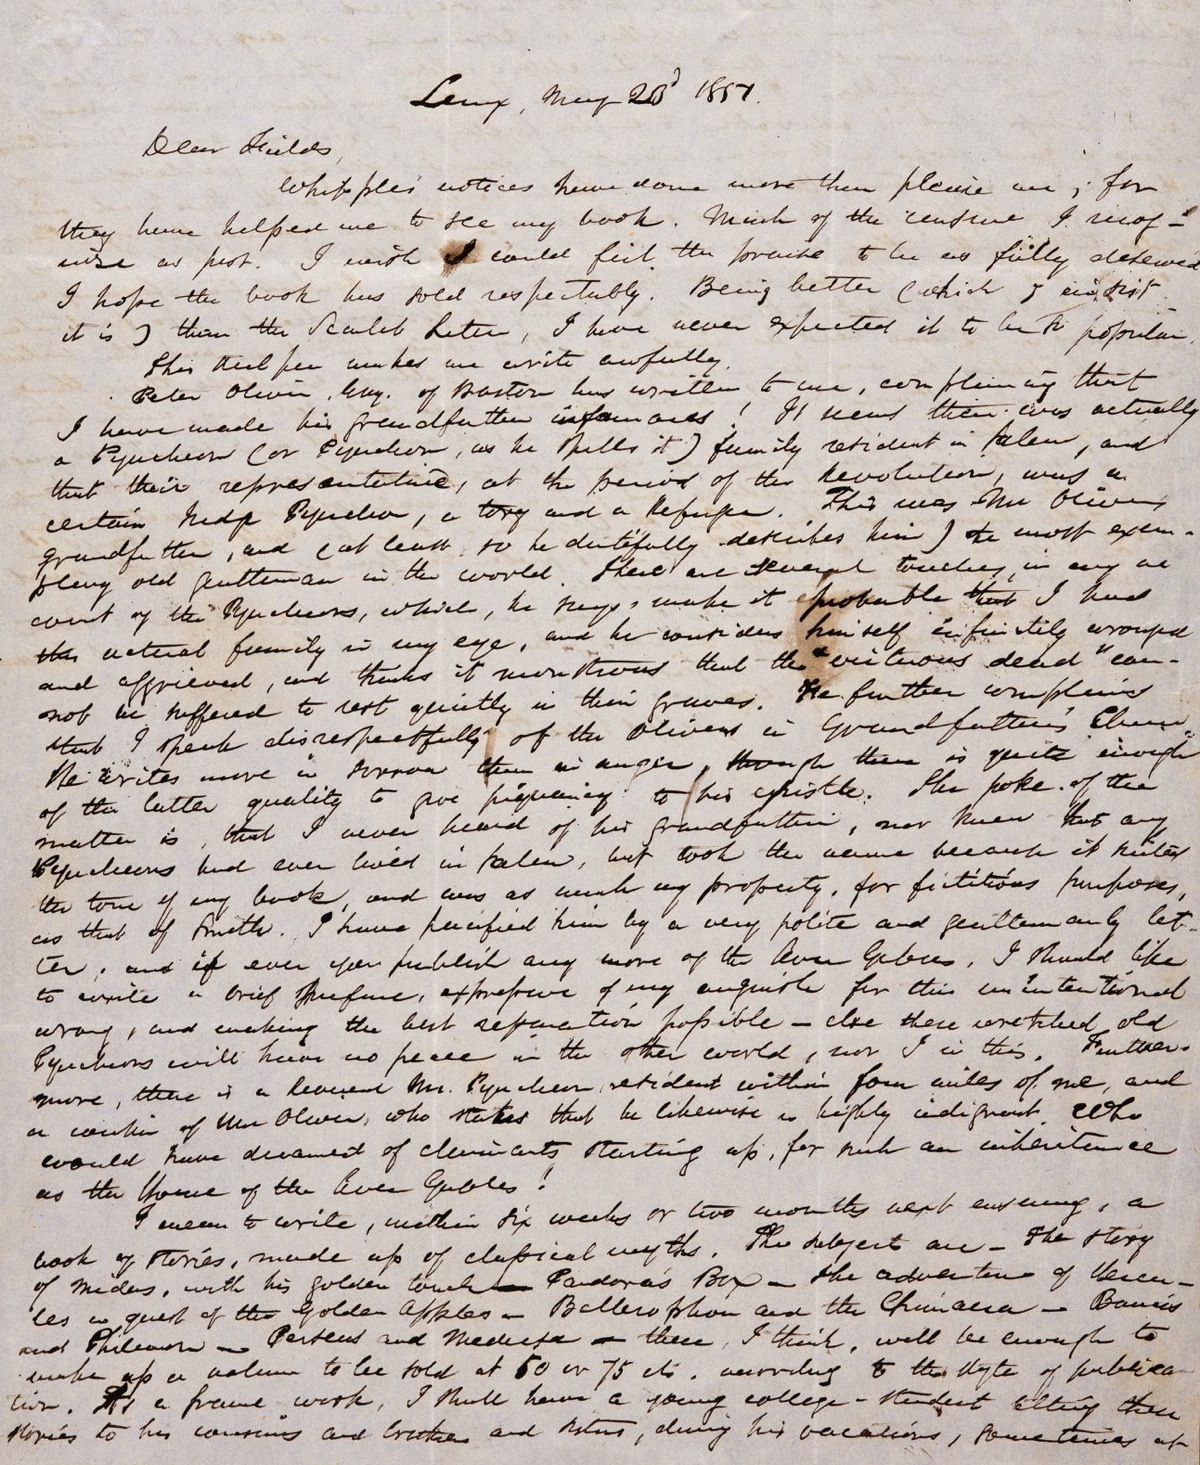 Lenox, May 23d 1851.
Dear Fields,
Whipple's notices have done more than please me; for
they have helped me to see my book. Much of the censure I recog-
nise as just. I wish I could feel the praise to be as fully deserved
I hope the book has sold respectably. Being better (which I insist
it is) than the Scarlet Letter, I have never expected it to be so popular.
This steel pen makes me write awfully.
Peter Oliver, Esq. of Boston has written to me, complaining that
I have made his grandfather infamous! It seems there was actually
a Pyncheon (or Pynchon, as he spells it) family resident in Salem, and
that their representative, at the period of the Revolution, was a
certain Judge Pynchon, a tory and a Refugee. This was Mr Oliver's
grandfather, and (at least so he dutifully describes him) the most exem-
plary old gentleman in the world. There are several touches, in my ac
count of the Pyncheons, which, he says, make it probable that I had
this actual family in my eye, and he considers himself infinitely wronged
and aggrieved, and thinks it monstrous that the "virtuous dead" can-
not be suffered to rest quietly in their graves. He further complains
that I speak disrespectfully of the Olivers in Grandfather's Chair.
He writes more in sorrow than in anger, though there is quite enough
of the latter quality to give piquancy to his epistle. The joke of the
matter is, that I never heard of his grandfather, nor knew that any
Pyncheons had ever lived in Salem, but took the name because it suited
the tone of my book, and was as much my property, for fictitious purposes,
as that of Smith. I have pacified him by a very polite and gentlemanly let-
ter; and if ever you publish any more of the Seven Gables, I should like
to write a brief preface, expressive of my anguish for this unintentional
wrong, and making the best reparation possible — else these wretched old
Pyncheons will have no peace in the other world, nor I in this. Further-
more, there is a Reverend Mr. Pyncheon, resident within four miles of me, and
a cousin of Mr Oliver, who states that he likewise is highly indignant. Who
would have dreamed of claimants starting up, for such an inheritance
as the House of the Seven Gables!
I mean to write, within six weeks or two months next ensuing, a
book of stories, made up of classical myths. The subjects are — The story
of Midas, with his golden touch — Pandora's Box — The adventure of Hercu-
les in quest of the Golden Apples — Bellerophon and the Chimaera — Baucis
and Philemon — Perseus and Medusa — these, I think, will be enough to
make up a volume to be sold at 50 or 75 cts. according to the style of publica
tion. As a frame work, I shall have a young college-student telling these
stories to his cousins and brothers and sisters, during his vacations, sometimes at